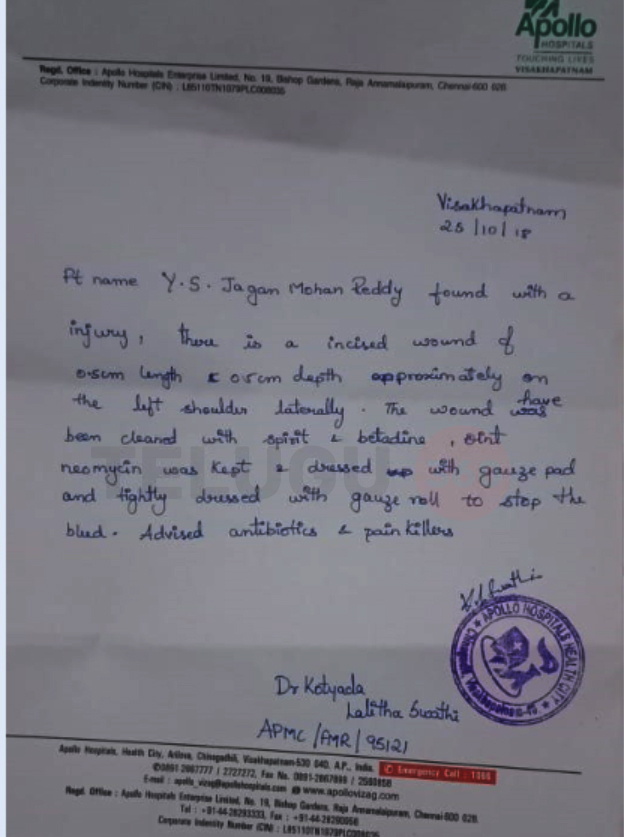 Apollo
HOSPITALS
TOUCHING LIVES
VISAKHAPATNAM
Regd. Office : Apollo Hospitals Enterprise Limited, No. 19, Bishop Gardens, Raja Annamalaipuram, Chennai-600 028
Corporate Indentity Number (CIN) : L85110TN1979PLC008035
Visakhapatnam
25/10/18
Pt name Y.S. Jagan Mohan Reddy found with a
injury, there is a incised wound of
0.5cm length & 0.5cm depth approximately on
the left shoulder laterally. The wound have
been cleaned with spirit & betadine, oint
neomycin was kept & dressed with gauze pad
and tightly dressed with gauze roll to stop the
blud. Advised antibiotics & pain killers
APOLLO HOSPITALS HEALTH CITY
Dr Kotyada
Lalitha Swathi
APMC/FMR/95121
Apollo Hospitals, Health City, Arilova, Chinagadhili, Visakhapatnam-530 040. A.P., India.
Emergency Call : 1066
0891-2867777 / 2727272, Fax No. 0891-2867899 /
E-mail : apollo_vizag@apollohospitals.com www.apollovizag.com
Regd. Office : Apollo Hospitals Enterprise Limited, No. 19, Bishop Gardens, Raja Annamalaipuram, Chennai-600 028
Tel : +91-44-28293333, Fax : +91-44-28290956
Corporate Indentity Number (CIN) : L85110TN1979PLC008035
TELUGU